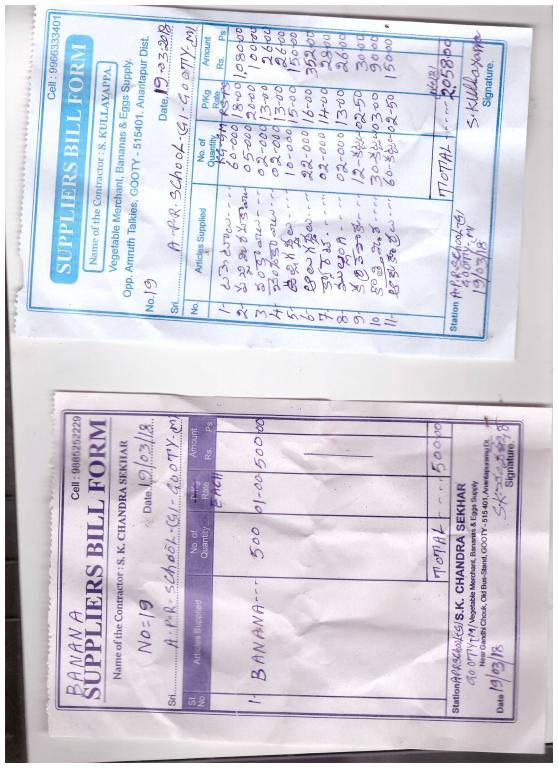 Cell : 9966333401
SUPPLIERS BILL FORM
Name of the Contractor : S. KULLAYAPPA.
Vegetable Merchant, Bananas & Eggs Supply.
Opp. Amruth Talkies, GOOTY - 515401. Anantapur Dist.
No. 19 Date. 19-03-2018
Sri. A-P-R-SCHOOL-(G)-GOOTY-(M)
No. Articles Supplied No. of Quantity P/Kg Rate Rs. Amount Rs. Ps
KG-GM RS-PS
1- 60-000 18-00 1080-00
2- 05-000 20-00 100-00
3- 02-000 13-00 26-00
4- 02-000 13-00 26-00
5- 10-000 15-00 150-00
6- 22-000 16-00 352-00
7- 02-000 14-00 28-00
8- 02-000 13-00 26-00
9- 12- 02-50 30-00
10- 30- 03-00 90-00
11- 60- 02-50 150-00
TOTAL ---- 2058-00
Station A.P.R.SCHOOL-G
GOOTY-M
19/03/18
S. Kullayappa
Signature.
BANANA
Cell : 9885252229
SUPPLIERS BILL FORM
Name of the Contractor : S. K. CHANDRA SEKHAR
NO=19 Date. 19/03/18
Sri. A-P-R-SCHOOL-(G)-GOOTY-(M)
Sl. No Articles Supplied No. of Quantity Rate Amount Rs. Ps
EACH
1- BANANA--- 500 01-00 500-00
TOTAL ---- 500-00
Station A.P.R.SCHOOL(G) S.K. CHANDRA SEKHAR
GOOTY-M Vegetable Merchant, Bananas & Eggs Supply
Near Gandhi Chouk, Old Bus-Stand, GOOTY - 515 401, Ananthapuramu Dt.
Date 19/03/18
Signature